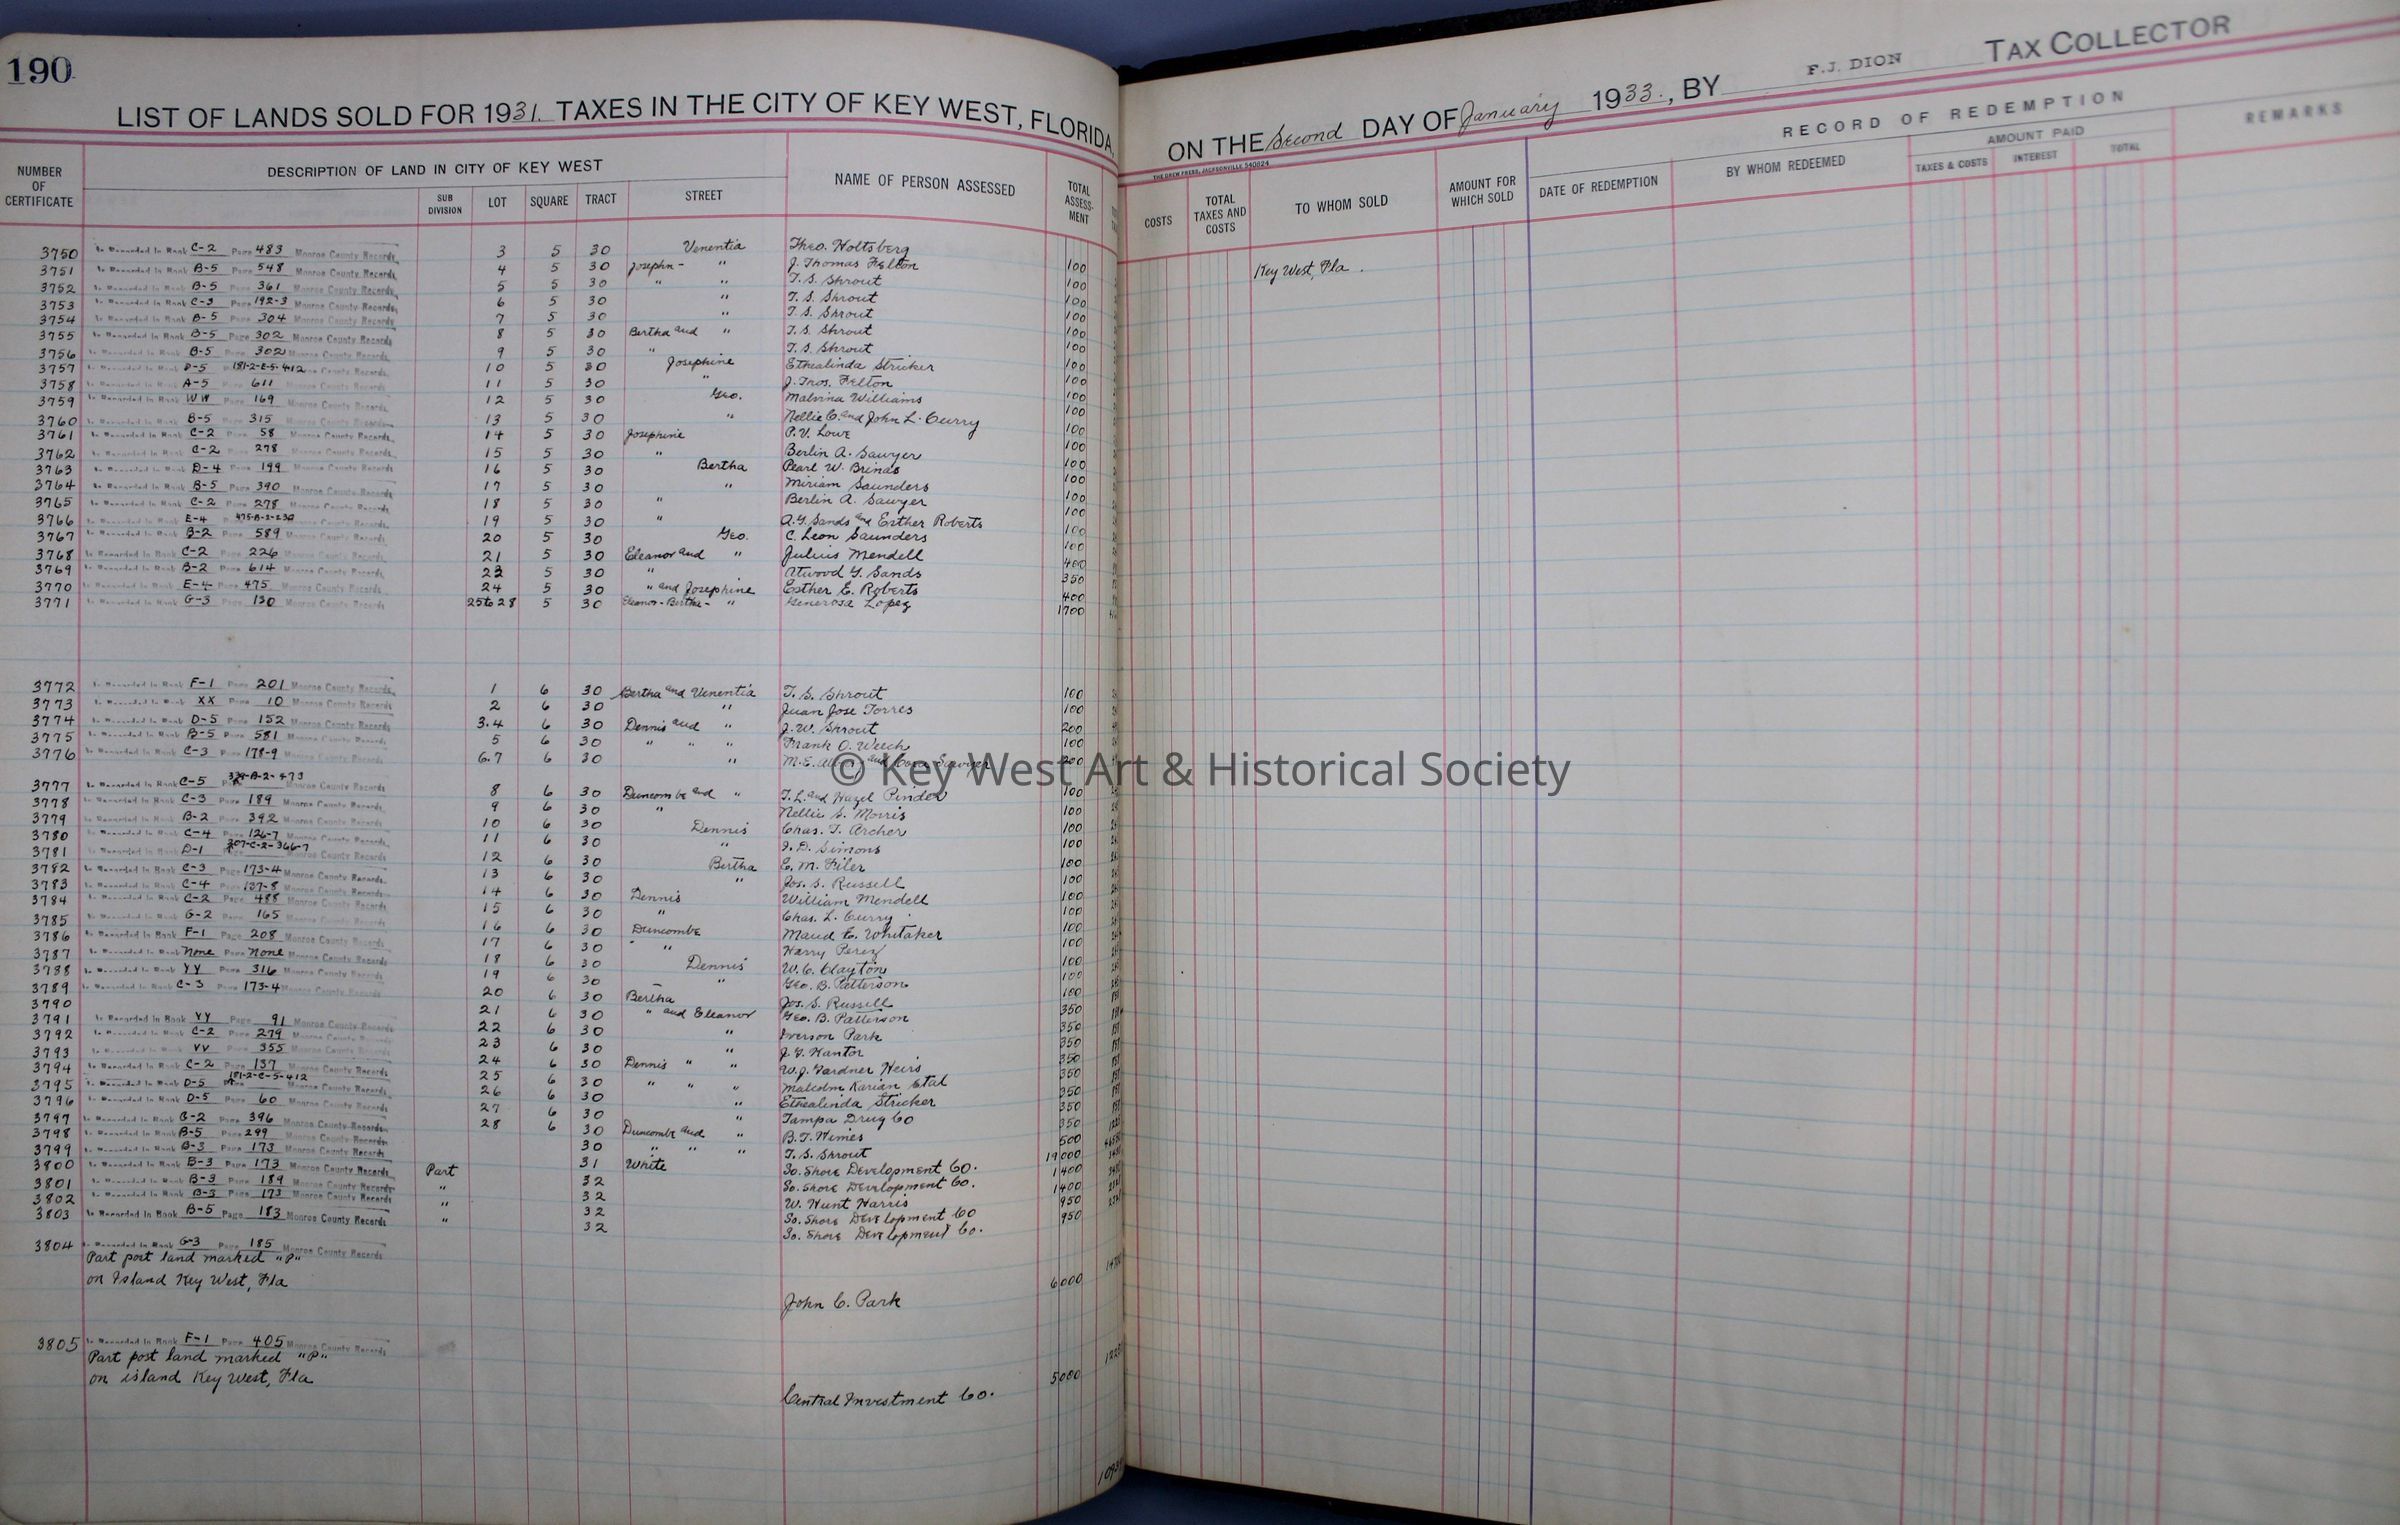 190
LIST OF LANDS SOLD FOR 1931. TAXES IN THE CITY OF KEY WEST, FLORIDA,
ON THE Second DAY OF January 1933., BY F.J. DION TAX COLLECTOR
THE DREW PRESS, JACKSONVILLE 540824
NUMBER OF CERTIFICATE DESCRIPTION OF LAND IN CITY OF KEY WEST SUB DIVISION LOT SQUARE TRACT STREET NAME OF PERSON ASSESSED TOTAL ASSESS- MENT
COSTS TOTAL TAXES AND COSTS TO WHOM SOLD AMOUNT FOR WHICH SOLD RECORD OF REDEMPTION DATE OF REDEMPTION BY WHOM REDEEMED AMOUNT PAID TAXES & COSTS INTEREST TOTAL REMARKS
Key West, Fla.
3750 As Recorded in Book C-2 Page 483 Monroe County Records 3 5 30 Venentia Theo. Holtsberg 100
3751 As Recorded in Book B-5 Page 548 Monroe County Records 4 5 30 Josephn- " J. Thomas Felton 100
3752 As Recorded in Book B-5 Page 361 Monroe County Records 5 5 30 " " T. S. Shrout 100
3753 As Recorded in Book C-3 Page 192-3 Monroe County Records 6 5 30 " T. S. Shrout 100
3754 As Recorded in Book B-5 Page 304 Monroe County Records 7 5 30 " T. S. Shrout 100
3755 As Recorded in Book B-5 Page 302 Monroe County Records 8 5 30 Bertha and " T. S. Shrout 100
3756 As Recorded in Book B-5 Page 302 Monroe County Records 9 5 30 " T. S. Shrout 100
3757 As Recorded in Book D-5 181-2-E-5-412 Monroe County Records 10 5 30 Josephine Ethealinda Stricker 100
3758 As Recorded in Book A-5 Page 611 Monroe County Records 11 5 30 " J. Thos. Felton 100
3759 As Recorded in Book WW Page 169 Monroe County Records 12 5 30 Geo. Malvina Williams 100
3760 As Recorded in Book B-5 Page 315 Monroe County Records 13 5 30 " Nellie C. and John L. Curry 100
3761 As Recorded in Book C-2 Page 58 Monroe County Records 14 5 30 Josephine P. V. Lowe 100
3762 As Recorded in Book C-2 Page 278 Monroe County Records 15 5 30 " Berlin A. Sawyer 100
3763 As Recorded in Book D-4 Page 199 Monroe County Records 16 5 30 Bertha Pearl W. Brinas 100
3764 As Recorded in Book B-5 Page 390 Monroe County Records 17 5 30 " Miriam Saunders 100
3765 As Recorded in Book C-2 Page 278 Monroe County Records 18 5 30 " Berlin A. Sawyer 100
3766 As Recorded in Book E-4 Monroe County Records 19 5 30 " A.Y. Sands and Esther Roberts 100
3767 As Recorded in Book B-2 Page 589 Monroe County Records 20 5 30 Geo. C. Leon Saunders 100
3768 As Recorded in Book C-2 Page 226 Monroe County Records 21 5 30 Eleanor and " Julius Mendell 400
3769 As Recorded in Book B-2 Page 614 Monroe County Records 23 5 30 " Atwood Y. Sands 350
3770 As Recorded in Book E-4 Page 475 Monroe County Records 24 5 30 " and Josephine Esther E. Roberts 400
3771 As Recorded in Book G-3 Page 130 Monroe County Records 25 to 28 5 30 Eleanor-Bertha- " Generosa Lopez 1700
3772 As Recorded in Book F-1 Page 201 Monroe County Records 1 6 30 Bertha and Venentia T. S. Shrout 100
3773 As Recorded in Book XX Page 10 Monroe County Records 2 6 30 " Juan Jose Torres 100
3774 As Recorded in Book D-5 Page 152 Monroe County Records 3.4 6 30 Dennis and " J. W. Shrout 200
3775 As Recorded in Book B-5 Page 581 Monroe County Records 5 6 30 " " " Frank O. Weech 100
3776 As Recorded in Book C-3 Page 178-9 Monroe County Records 6.7 6 30 " M. E. and Cora Sawyer 200
3777 As Recorded in Book C-5 Monroe County Records 8 6 30 Duncombe and " T. L. and Hazel Pinder 100
3778 As Recorded in Book C-3 Page 189 Monroe County Records 9 6 30 " Nellie S. Morris 100
3779 As Recorded in Book B-2 Page 392 Monroe County Records 10 6 30 Dennis Chas. T. Archer 100
3780 As Recorded in Book C-4 Page 126-7 Monroe County Records 11 6 30 " J. D. Simons 100
3781 As Recorded in Book D-1 307-C-2-366-7 Monroe County Records 12 6 30 Bertha E. M. Filer 100
3782 As Recorded in Book C-3 Page 173-4 Monroe County Records 13 6 30 " Jos. S. Russell 100
3783 As Recorded in Book C-4 Page 137-8 Monroe County Records 14 6 30 Dennis William Mendell 100
3784 As Recorded in Book C-2 Page 488 Monroe County Records 15 6 30 " Chas. L. Curry 100
3785 As Recorded in Book G-2 Page 165 Monroe County Records 16 6 30 Duncombe Maud E. Whitaker 100
3786 As Recorded in Book F-1 Page 208 Monroe County Records 17 6 30 " Harry Perez 100
3787 As Recorded in Book None Page None Monroe County Records 18 6 30 Dennis W. C. Clayton 100
3788 As Recorded in Book YY Page 316 Monroe County Records 19 6 30 " Geo. B. Patterson 100
3789 As Recorded in Book C-3 Page 173-4 Monroe County Records 20 6 30 Bertha Jos. S. Russell 100
3790 21 6 30 " and Eleanor Geo. B. Patterson 350
3791 As Recorded in Book YY Page 91 Monroe County Records 22 6 30 " Iverson Park 350
3792 As Recorded in Book C-2 Page 279 Monroe County Records 23 6 30 " J. Y. Kantor 350
3793 As Recorded in Book VV Page 355 Monroe County Records 24 6 30 Dennis " " W. J. Gardner Heirs 350
3794 As Recorded in Book C-2 Page 137 Monroe County Records 25 6 30 " " " Malcolm Karian Etal 350
3795 As Recorded in Book D-5 181-2-C-5-412 Monroe County Records 26 6 30 " Ethealinda Stricker 350
3796 As Recorded in Book D-5 Page 60 Monroe County Records 27 6 30 " Tampa Drug Co 350
3797 As Recorded in Book G-2 Page 396 Monroe County Records 28 6 30 Duncombe and " B. T. Himes 350
3798 As Recorded in Book B-5 Page 299 Monroe County Records 30 " " " T. S. Shrout 500
3799 As Recorded in Book B-3 Page 173 Monroe County Records 31 White So. Shore Development Co. 19000
3800 As Recorded in Book B-3 Page 173 Monroe County Records Part 32 So. Shore Development Co. 1400
3801 As Recorded in Book B-3 Page 189 Monroe County Records " 32 W. Hunt Harris 1400
3802 As Recorded in Book B-3 Page 173 Monroe County Records " 32 So. Shore Development Co 950
3803 As Recorded in Book B-5 Page 183 Monroe County Records " 32 So. Shore Development Co. 950
3804 As Recorded in Book G-3 Page 185 Monroe County Records
Part post land marked "P"
on Island Key West, Fla 6000
John C. Park
3805 As Recorded in Book F-1 Page 405 Monroe County Records
Part post land marked "P"
on island Key West, Fla 5000
Central Investment Co.
© Key West Art & Historical Society